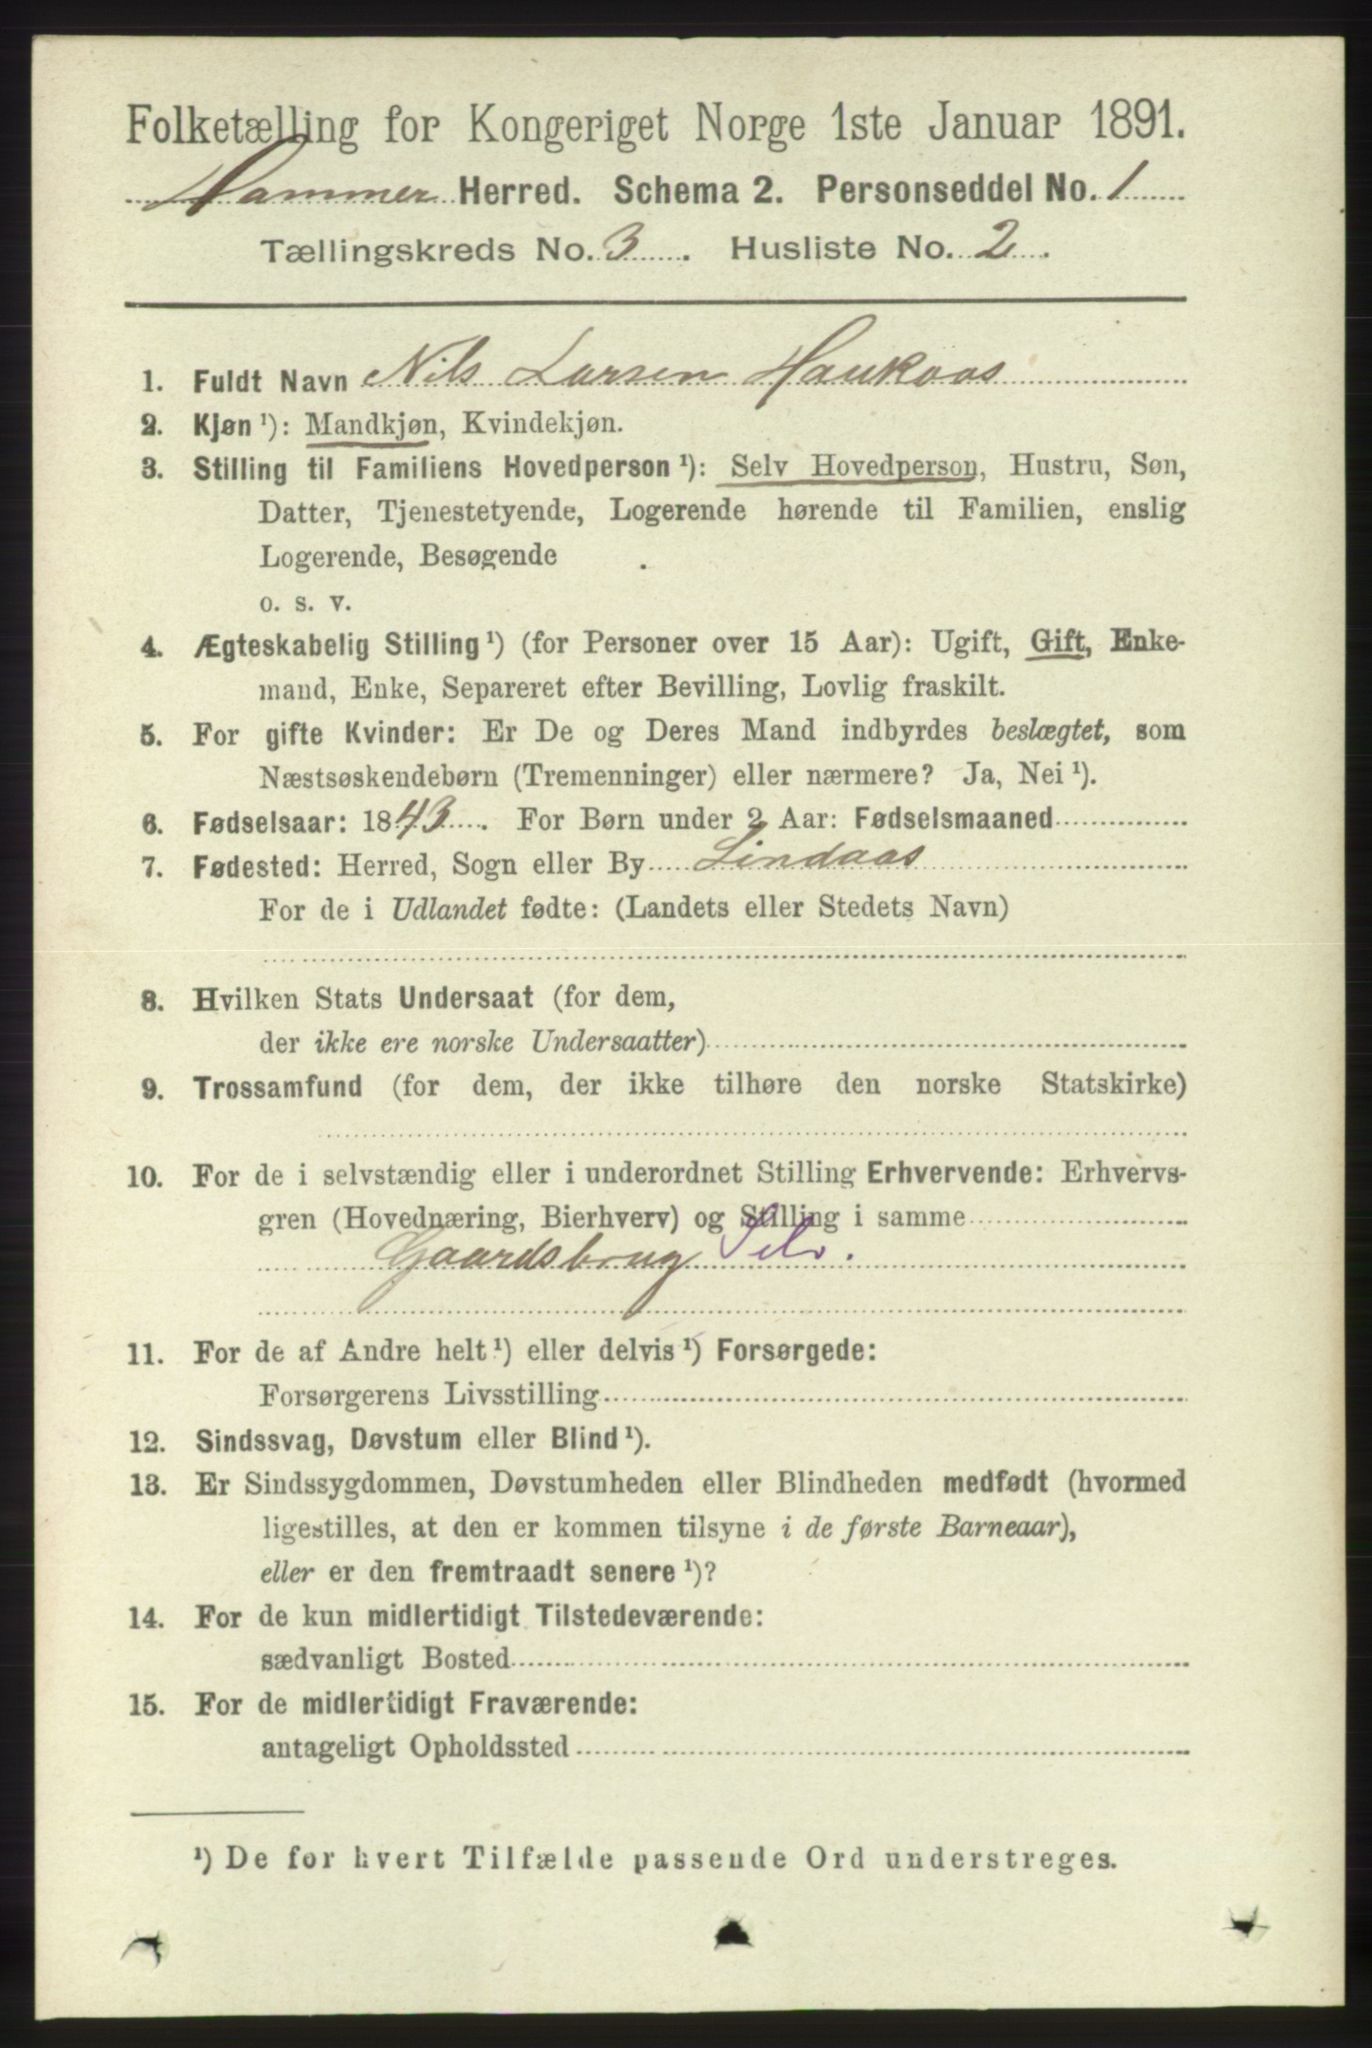 Folketælling for Kongeriget Norge 1ste Januar 1891.
Hammer Herred. Schema 2. Personseddel No. 1
Tællingskreds No. 3. Husliste No. 2.
1. Fuldt Navn Nils Larsen Haukaas
2. Kjøn ¹): Mandkjøn, Kvindekjøn.
3. Stilling til Familiens Hovedperson ¹): Selv Hovedperson, Hustru, Søn,
Datter, Tjenestetyende, Logerende hørende til Familien, enslig
Logerende, Besøgende
o. s. v.
4. Ægteskabelig Stilling ¹) (for Personer over 15 Aar): Ugift, Gift, Enke-
mand, Enke, Separeret efter Bevilling, Lovlig fraskilt.
5. For gifte Kvinder: Er De og Deres Mand indbyrdes beslægtet, som
Næstsøskendebørn (Tremenninger) eller nærmere? Ja, Nei ¹).
6. Fødselsaar: 1843. For Børn under 2 Aar: Fødselsmaaned
7. Fødested: Herred, Sogn eller By Lindaas
For de i Udlandet fødte: (Landets eller Stedets Navn)
8. Hvilken Stats Undersaat (for dem,
der ikke ere norske Undersaatter)
9. Trossamfund (for dem, der ikke tilhøre den norske Statskirke)
10. For de i selvstændig eller i underordnet Stilling Erhvervende: Erhvervs-
gren (Hovednæring, Bierhverv) og Stilling i samme
Gaardsbrug Selv.
11. For de af Andre helt ¹) eller delvis ¹) Forsørgede:
Forsørgerens Livsstilling
12. Sindssvag, Døvstum eller Blind ¹).
13. Er Sindssygdommen, Døvstumheden eller Blindheden medfødt (hvormed
ligestilles, at den er kommen tilsyne i de første Barneaar),
eller er den fremtraadt senere ¹)?
14. For de kun midlertidigt Tilstedeværende:
sædvanligt Bosted
15. For de midlertidigt Fraværende:
antageligt Opholdssted
¹) De for hvert Tilfælde passende Ord understreges.